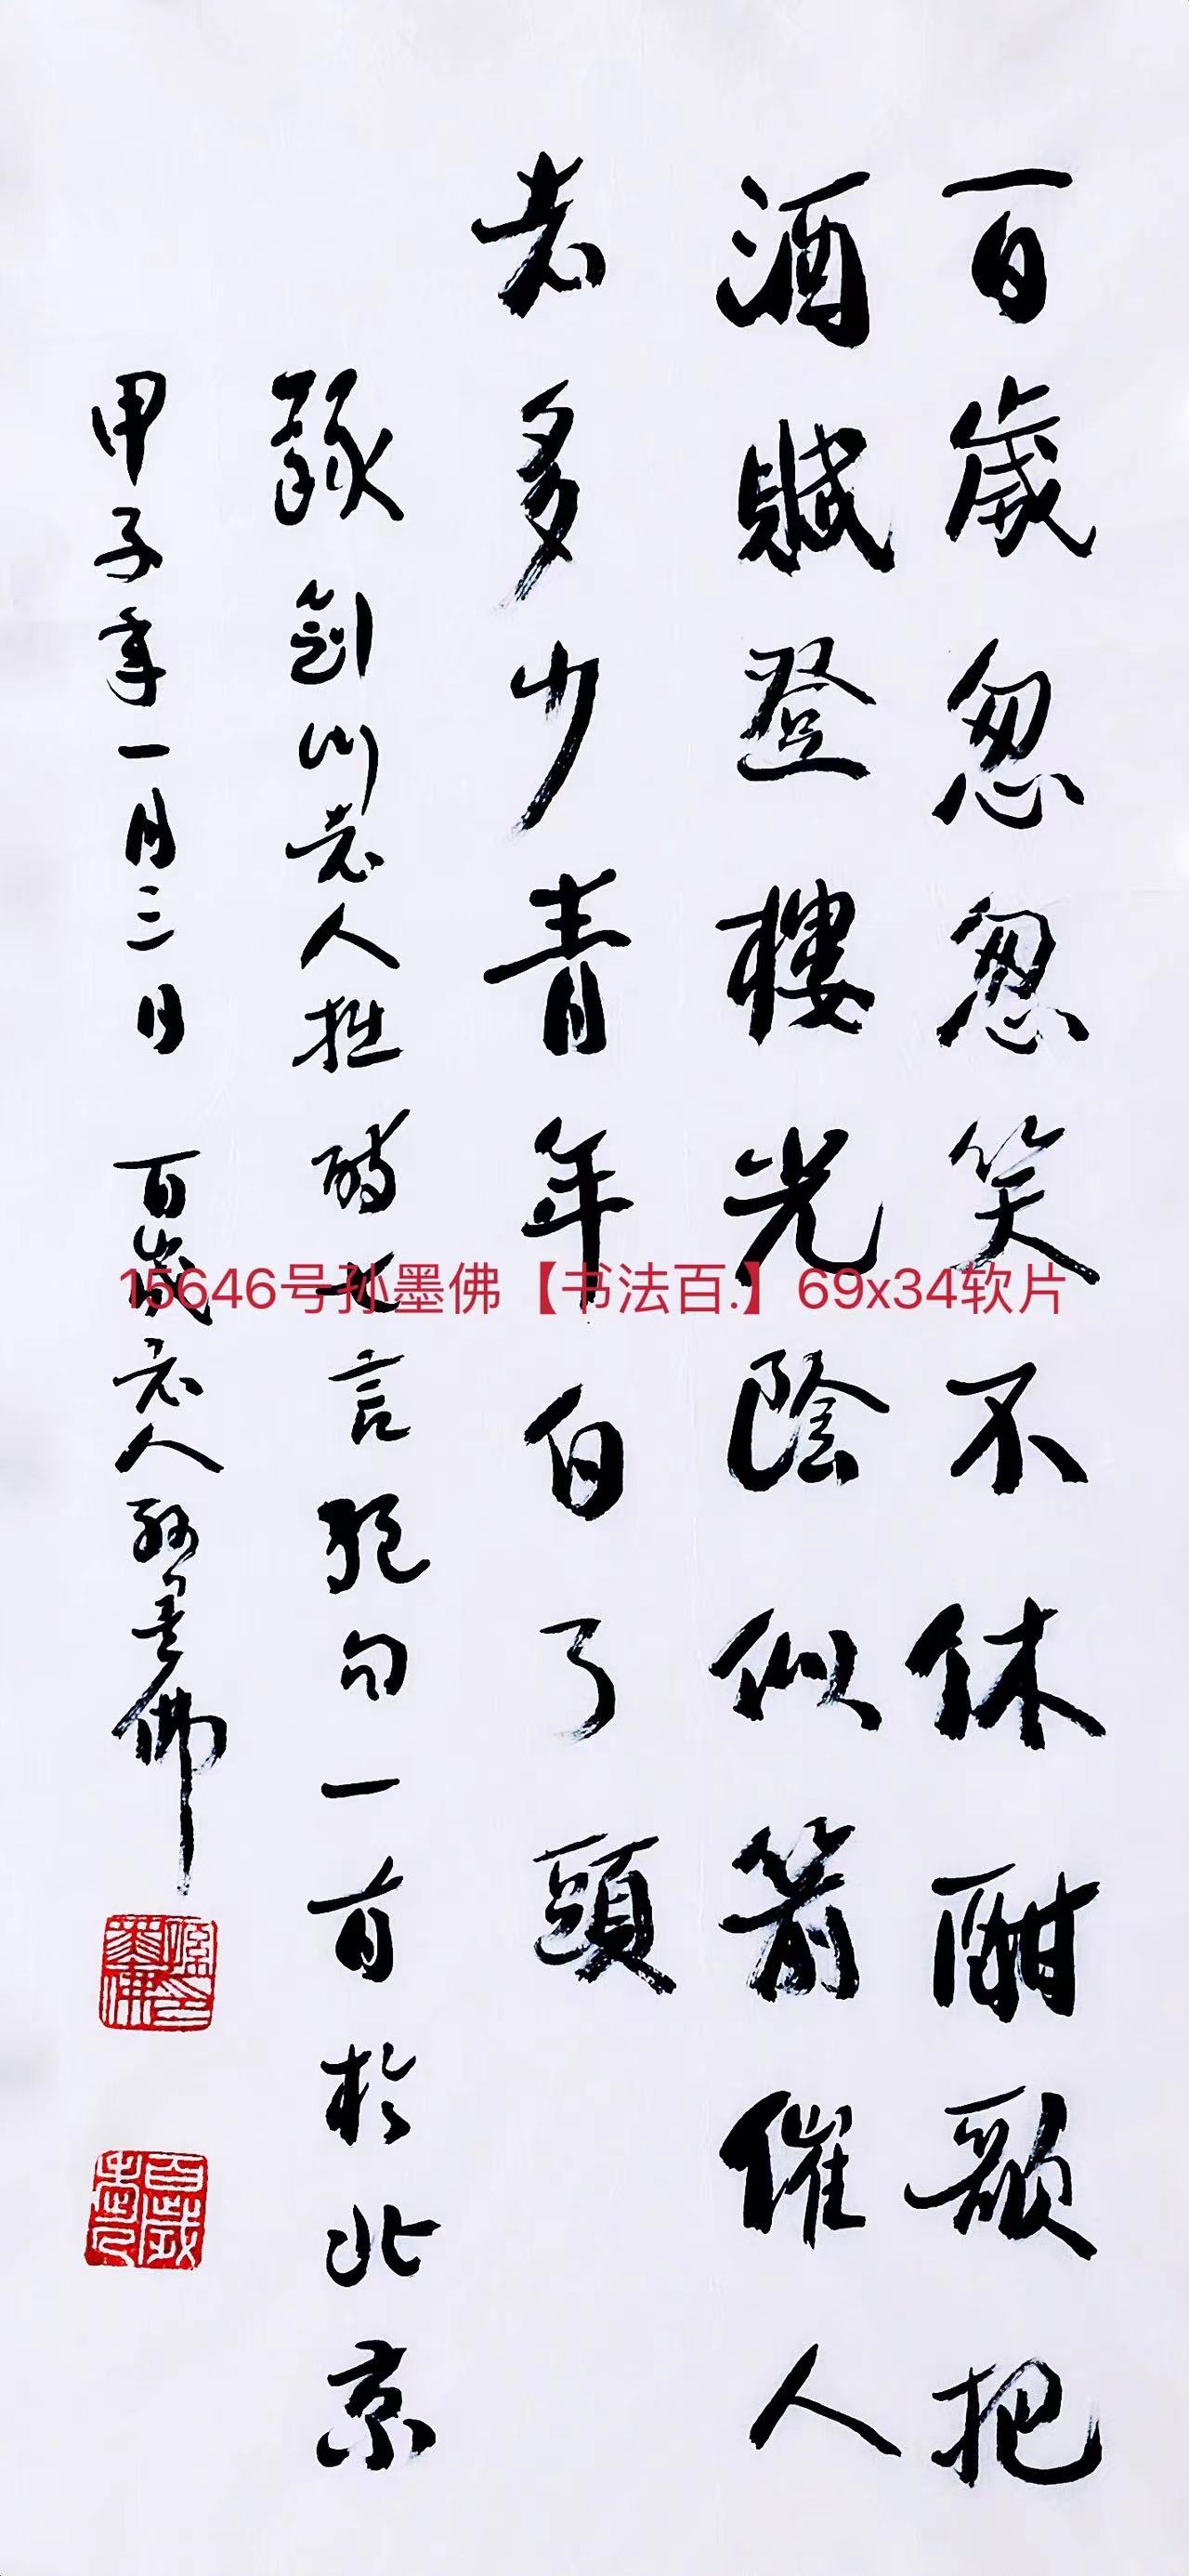 百歲忽忽笑不休酣歌把
酒賦登樓光陰似箭催人
老多少青年白了頭
錄劍川老人
言絕句一首於北京
甲子年一月三日 百歲老人孫墨佛
15646号孙墨佛【书法百.】69x34软片
孫墨佛印
百歲老人